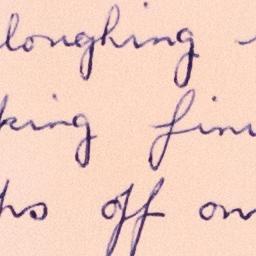 loughing
king fin
ps off on